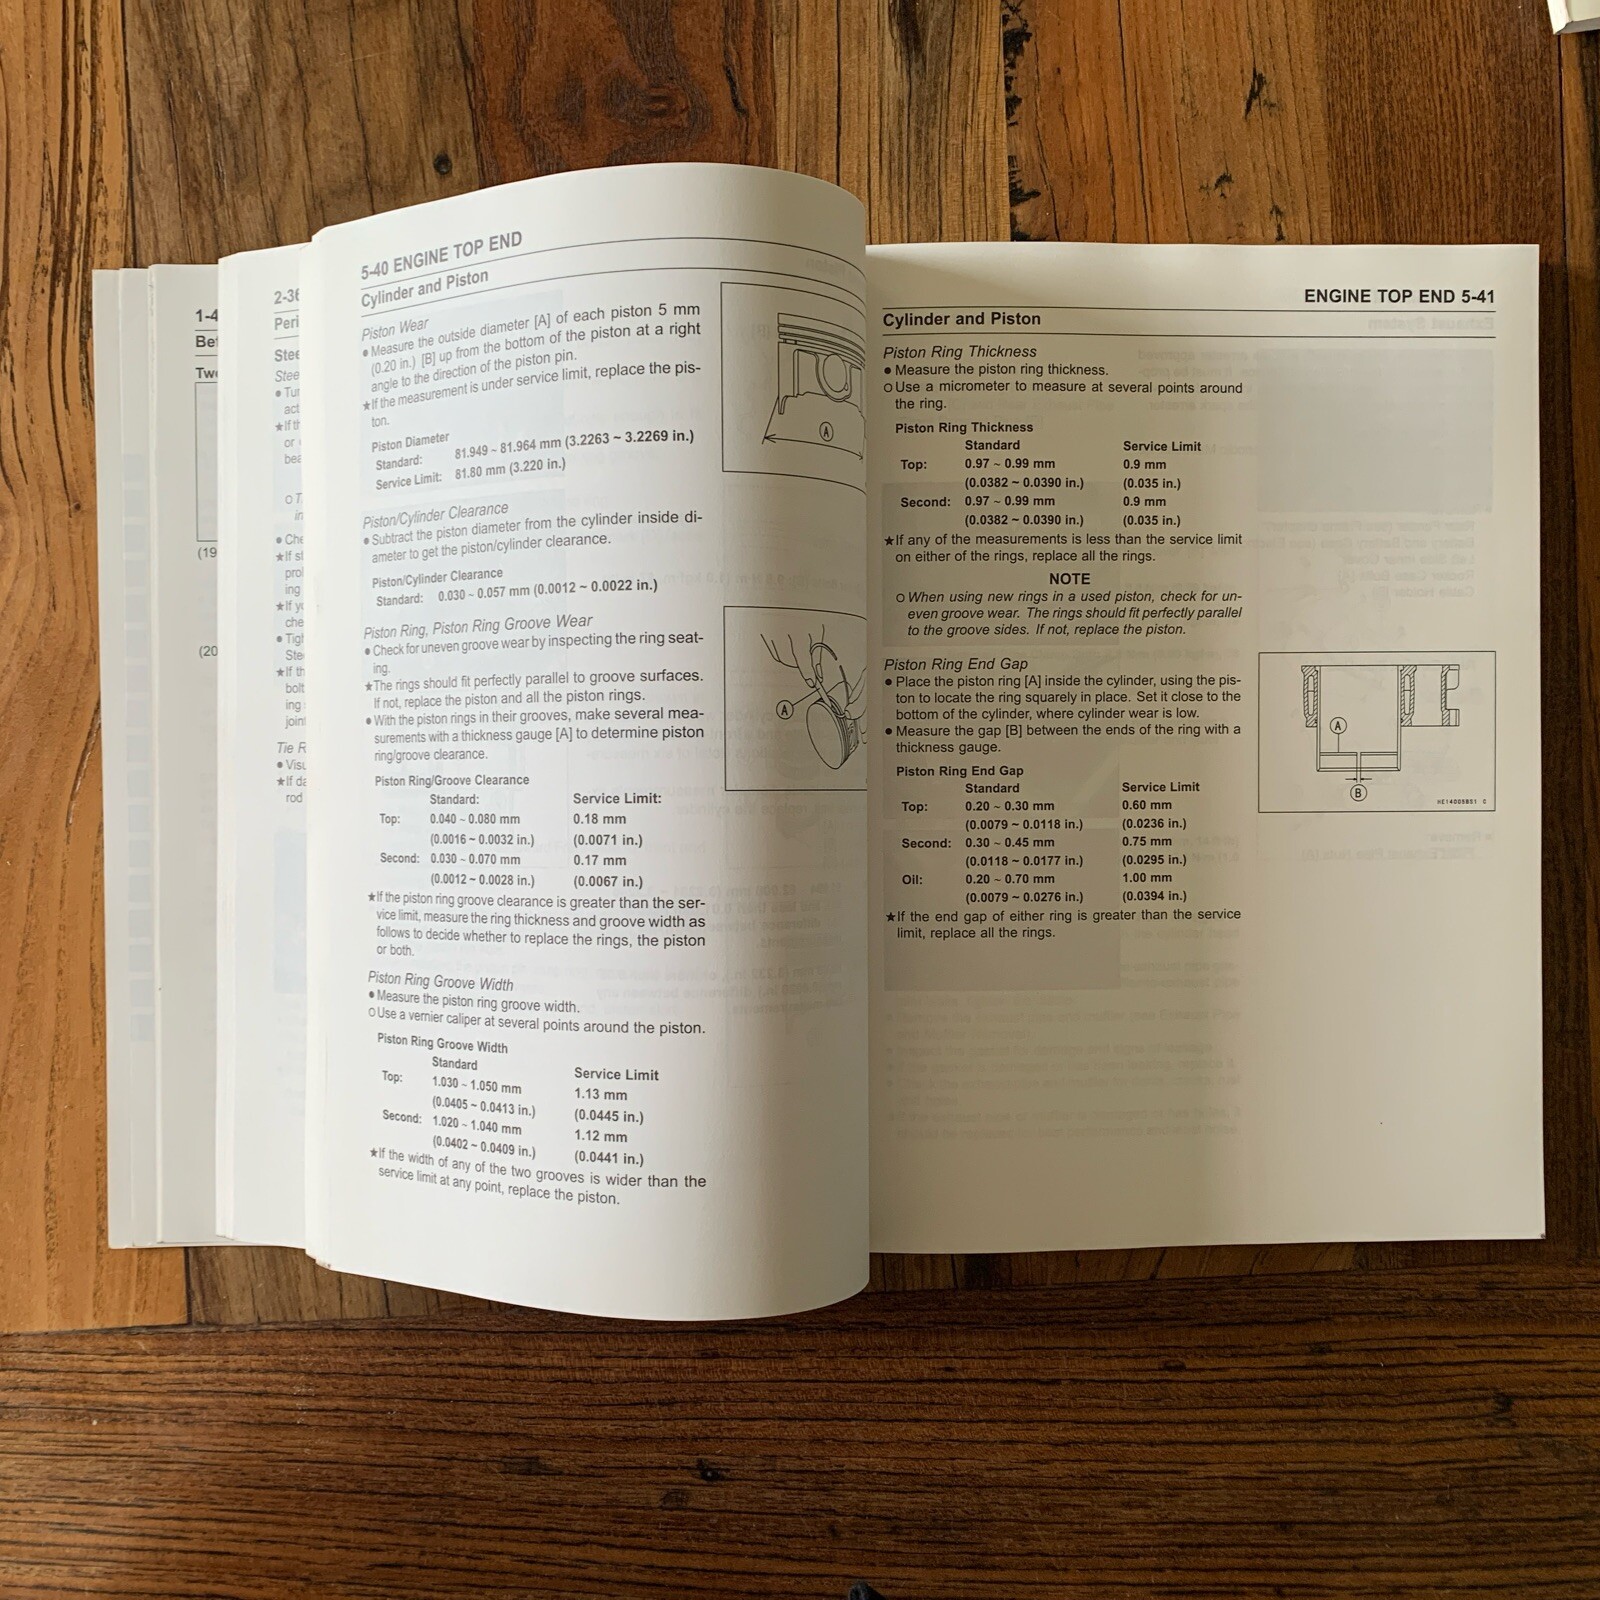 1-4
Be
Two
(19
(20
2-36
Peri
Stee
Stee
● Tur
act
★If th
or
bea
○ T
in
● Che
★If st
prol
ing
★If yo
che
● Tigh
Stee
★If th
bolt
ing
joint
Tie R
● Visu
★If da
rod
5-40 ENGINE TOP END
Cylinder and Piston
Piston Wear
● Measure the outside diameter [A] of each piston 5 mm
(0.20 in.) [B] up from the bottom of the piston at a right
angle to the direction of the piston pin.
★If the measurement is under service limit, replace the pis-
ton.
Piston Diameter
Standard: 81.949 ~ 81.964 mm (3.2263 ~ 3.2269 in.)
Service Limit: 81.80 mm (3.220 in.)
A
Piston/Cylinder Clearance
● Subtract the piston diameter from the cylinder inside di-
ameter to get the piston/cylinder clearance.
Piston/Cylinder Clearance
Standard: 0.030 ~ 0.057 mm (0.0012 ~ 0.0022 in.)
Piston Ring, Piston Ring Groove Wear
● Check for uneven groove wear by inspecting the ring seat-
ing.
★The rings should fit perfectly parallel to groove surfaces.
If not, replace the piston and all the piston rings.
● With the piston rings in their grooves, make several mea-
surements with a thickness gauge [A] to determine piston
ring/groove clearance.
A
Piston Ring/Groove Clearance
Standard: Service Limit:
Top: 0.040 ~ 0.080 mm 0.18 mm
(0.0016 ~ 0.0032 in.) (0.0071 in.)
Second: 0.030 ~ 0.070 mm 0.17 mm
(0.0012 ~ 0.0028 in.) (0.0067 in.)
★If the piston ring groove clearance is greater than the ser-
vice limit, measure the ring thickness and groove width as
follows to decide whether to replace the rings, the piston
or both.
Piston Ring Groove Width
● Measure the piston ring groove width.
○ Use a vernier caliper at several points around the piston.
Piston Ring Groove Width
Standard Service Limit
Top: 1.030 ~ 1.050 mm 1.13 mm
(0.0405 ~ 0.0413 in.) (0.0445 in.)
Second: 1.020 ~ 1.040 mm 1.12 mm
(0.0402 ~ 0.0409 in.) (0.0441 in.)
★If the width of any of the two grooves is wider than the
service limit at any point, replace the piston.
ENGINE TOP END 5-41
Cylinder and Piston
Piston Ring Thickness
● Measure the piston ring thickness.
○ Use a micrometer to measure at several points around
the ring.
Piston Ring Thickness
Standard Service Limit
Top: 0.97 ~ 0.99 mm 0.9 mm
(0.0382 ~ 0.0390 in.) (0.035 in.)
Second: 0.97 ~ 0.99 mm 0.9 mm
(0.0382 ~ 0.0390 in.) (0.035 in.)
★If any of the measurements is less than the service limit
on either of the rings, replace all the rings.
NOTE
○ When using new rings in a used piston, check for un-
even groove wear. The rings should fit perfectly parallel
to the groove sides. If not, replace the piston.
Piston Ring End Gap
● Place the piston ring [A] inside the cylinder, using the pis-
ton to locate the ring squarely in place. Set it close to the
bottom of the cylinder, where cylinder wear is low.
● Measure the gap [B] between the ends of the ring with a
thickness gauge.
Piston Ring End Gap
Standard Service Limit
Top: 0.20 ~ 0.30 mm 0.60 mm
(0.0079 ~ 0.0118 in.) (0.0236 in.)
Second: 0.30 ~ 0.45 mm 0.75 mm
(0.0118 ~ 0.0177 in.) (0.0295 in.)
Oil: 0.20 ~ 0.70 mm 1.00 mm
(0.0079 ~ 0.0276 in.) (0.0394 in.)
★If the end gap of either ring is greater than the service
limit, replace all the rings.
A
B